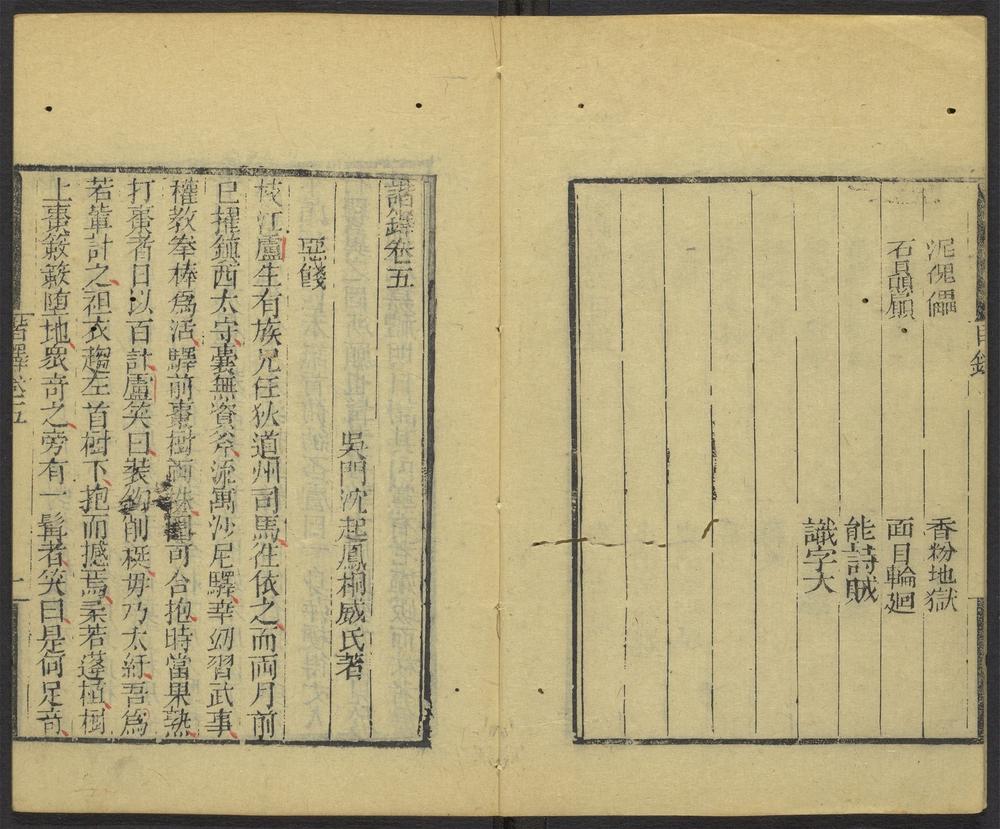 泥傀儡
香粉地獄
石貢頭願
面目輪廻
能詩賊
識字犬
目錄
諧鐸卷五
吳門沈起鳳桐威氏著
惡餞
枝江盧生有族兄任狄道州司馬往依之而兩月前
已擢鎮西太守囊無資斧流寓沙尼驛幸幼習武事
權教拳棒爲活驛前棗樹兩株圍可合抱時當果熟
打棗者日以百計盧笑曰裝鈎削梃毋乃太紆吾爲
若輩計之袒衣趨左首樹下抱而撼焉柔若蓬植樹
上棗簌簌墮地衆奇之旁有一髯者笑曰是何足奇
諧鐸卷五
一